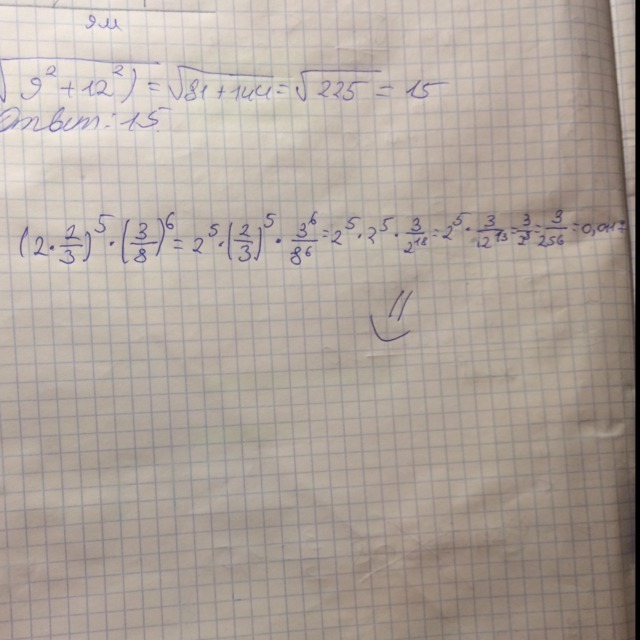 9м
√9² + 12²) = √81 + 144 = √225 = 15
Ответ: 15.
(2 · 2/3)⁵ · (3/8)⁶ = 2⁵ · (2/3)⁵ · 3⁶/8⁶ = 2⁵ · 2⁵ · 3/2¹⁸ = 2⁵ · 3/2¹³ = 3/2⁸ = 3/256 =